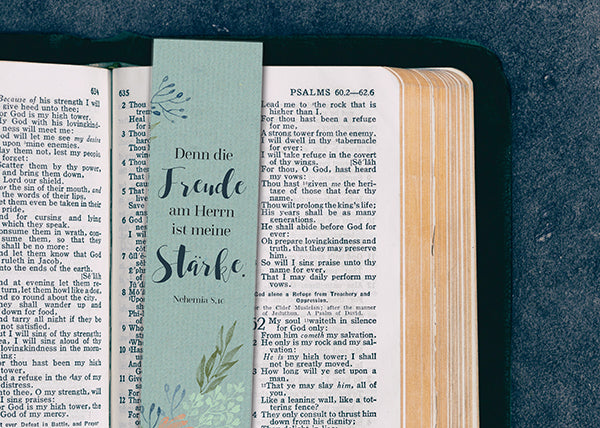 634
Because of his strength I will
give heed unto thee;
For God is my high tower.
My God with his lovingkind-
ness will meet me:
God will let me see my desire
upon mine enemies.
them not, lest my people
forget:
Scatter them by thy power,
and bring them down,
Lord our shield.
For the sin of their mouth, and
the words of their lips,
Let them even be taken in their
pride,
And for cursing and lying
which they speak.
Consume them in wrath, con-
sume them, so that they
shall be no more:
And let them know that God
ruleth in Jacob,
Unto the ends of the earth.
[Sē'läh
And at evening let them re-
turn, let them howl like a dog,
And go round about the city.
They shall wander up and
down for food,
And tarry all night if they be
not satisfied.
But I will sing of thy strength;
Yea, I will sing aloud of thy
lovingkindness in the morn-
ing:
For thou hast been my high
tower,
And a refuge in the day of my
distress.
Unto thee, O my strength, will
I sing praises:
For God is my high tower, the
God of my mercy.
over Defeat in Battle, and Prayer
635
2 Thou
Heal
3 Thou
4 Thou
5 That
6 God
7
8 Moab
9 Who
10 Hast
11 Give
12 Through
Denn die
Freude
am Herrn
ist meine
Stärke.
Nehemia 8,10
PSALMS 60.2—62.6
Lead me to the rock that is
higher than I.
For thou hast been a refuge
for me,
A strong tower from the enemy.
I will dwell in thy tabernacle
for ever:
I will take refuge in the covert
of thy wings. [Sē'läh
For thou, O God, hast heard
my vows:
Thou hast given me the heri-
tage of those that fear thy
name.
Thou wilt prolong the king's life;
His years shall be as many
generations.
He shall abide before God for
ever:
Oh prepare lovingkindness and
truth, that they may preserve
him.
So will I sing praise unto thy
name for ever,
That I may daily perform my
vows.
God alone a Refuge from Treachery and
Oppression.
the Chief Musician; after the manner
of Jeduthun. A Psalm of David.
62 My soul waiteth in silence
for God only:
From him cometh my salvation.
He only is my rock and my sal-
vation:
He is my high tower; I shall
not be greatly moved.
How long will ye set upon a
man,
That ye may slay him, all of
you,
Like a leaning wall, like a tot-
tering fence?
They only consult to thrust him
down from his dignity;